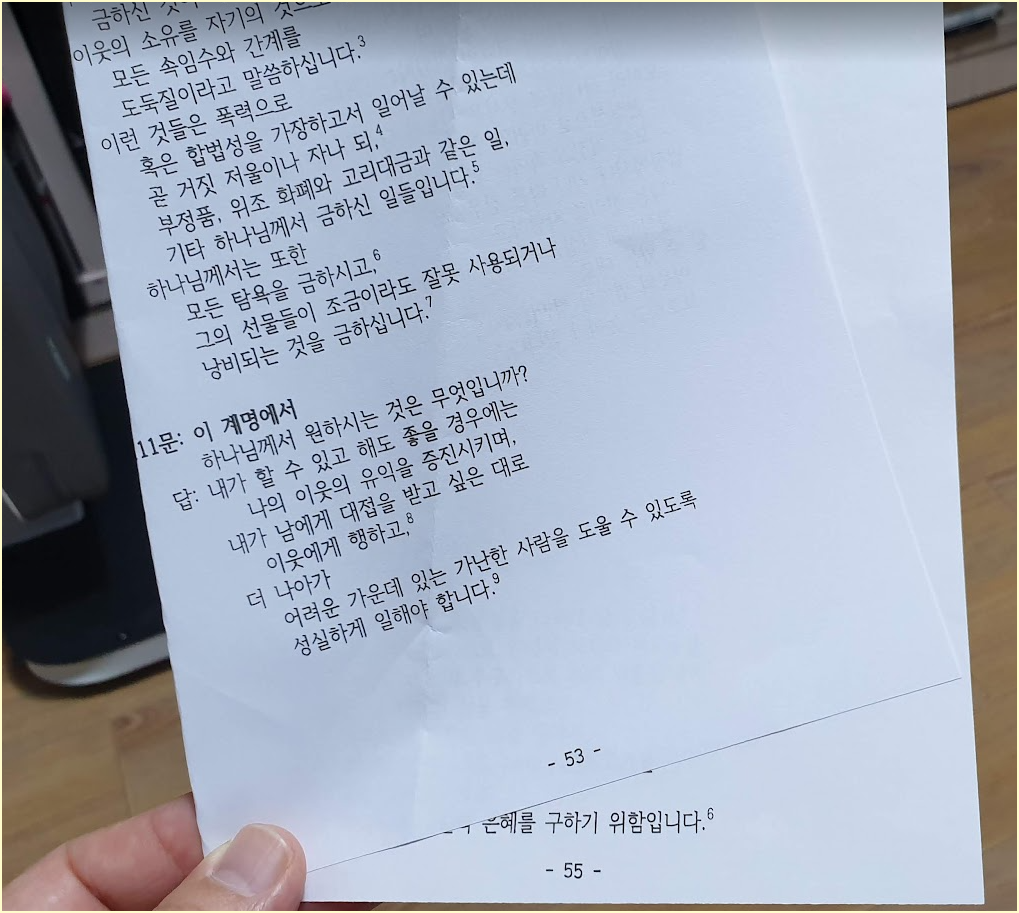 금하신 것
이웃의 소유를 자기의 것으로
모든 속임수와 간계를
도둑질이라고 말씀하십니다.³
이런 것들은 폭력으로
혹은 합법성을 가장하고서 일어날 수 있는데
곧 거짓 저울이나 자나 되,⁴
부정품, 위조 화폐와 고리대금과 같은 일,
기타 하나님께서 금하신 일들입니다.⁵
하나님께서는 또한
모든 탐욕을 금하시고,⁶
그의 선물들이 조금이라도 잘못 사용되거나
낭비되는 것을 금하십니다.⁷
11문: 이 계명에서
하나님께서 원하시는 것은 무엇입니까?
답: 내가 할 수 있고 해도 좋을 경우에는
나의 이웃의 유익을 증진시키며,
내가 남에게 대접을 받고 싶은 대로
이웃에게 행하고,⁸
더 나아가
어려운 가운데 있는 가난한 사람을 도울 수 있도록
성실하게 일해야 합니다.⁹
- 53 -
은혜를 구하기 위함입니다.⁶
- 55 -